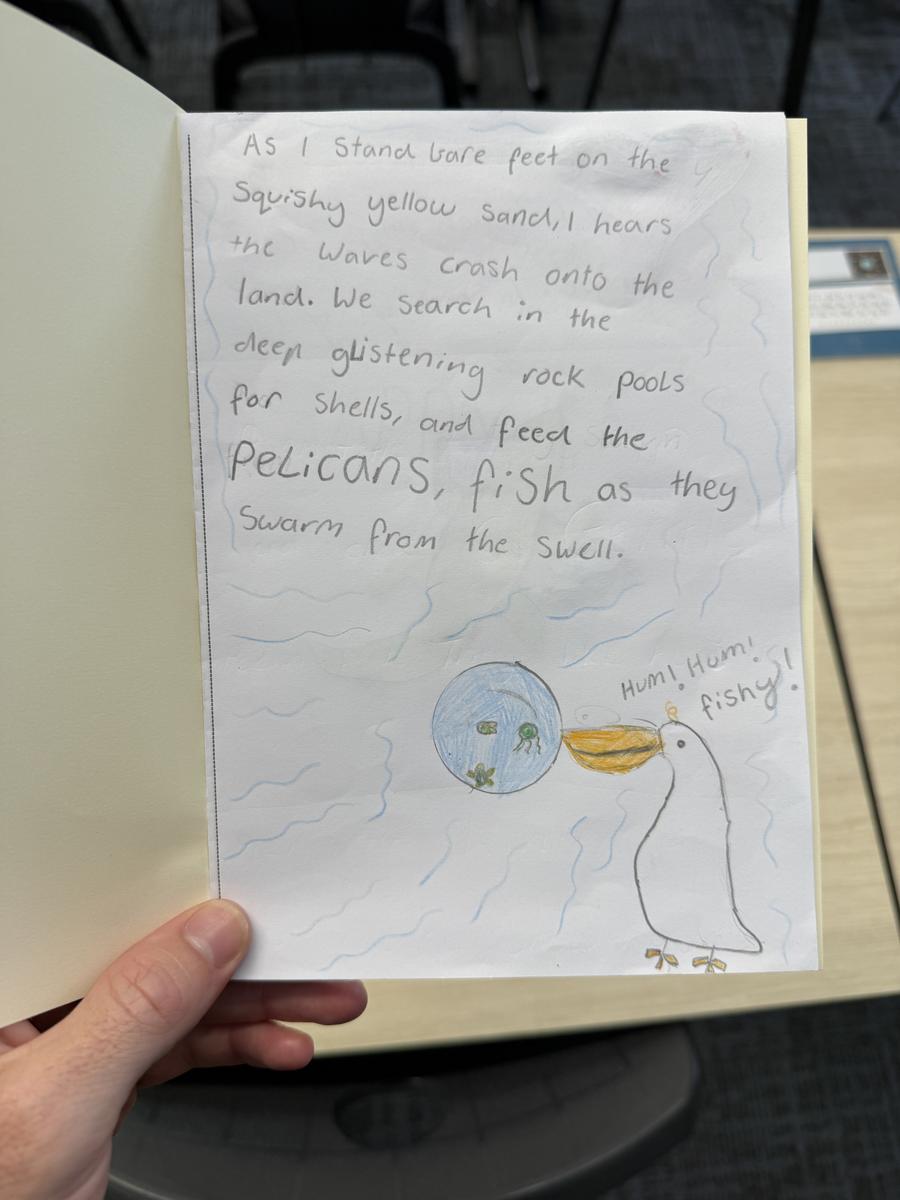 As I stand bare feet on the
Squishy yellow sand, I hears
the waves crash onto the
land. We search in the
deep glistening rock pools
for shells, and feed the
PeLicans, fish as they
swarm from the swell.
Hum! Hum!
fishy!